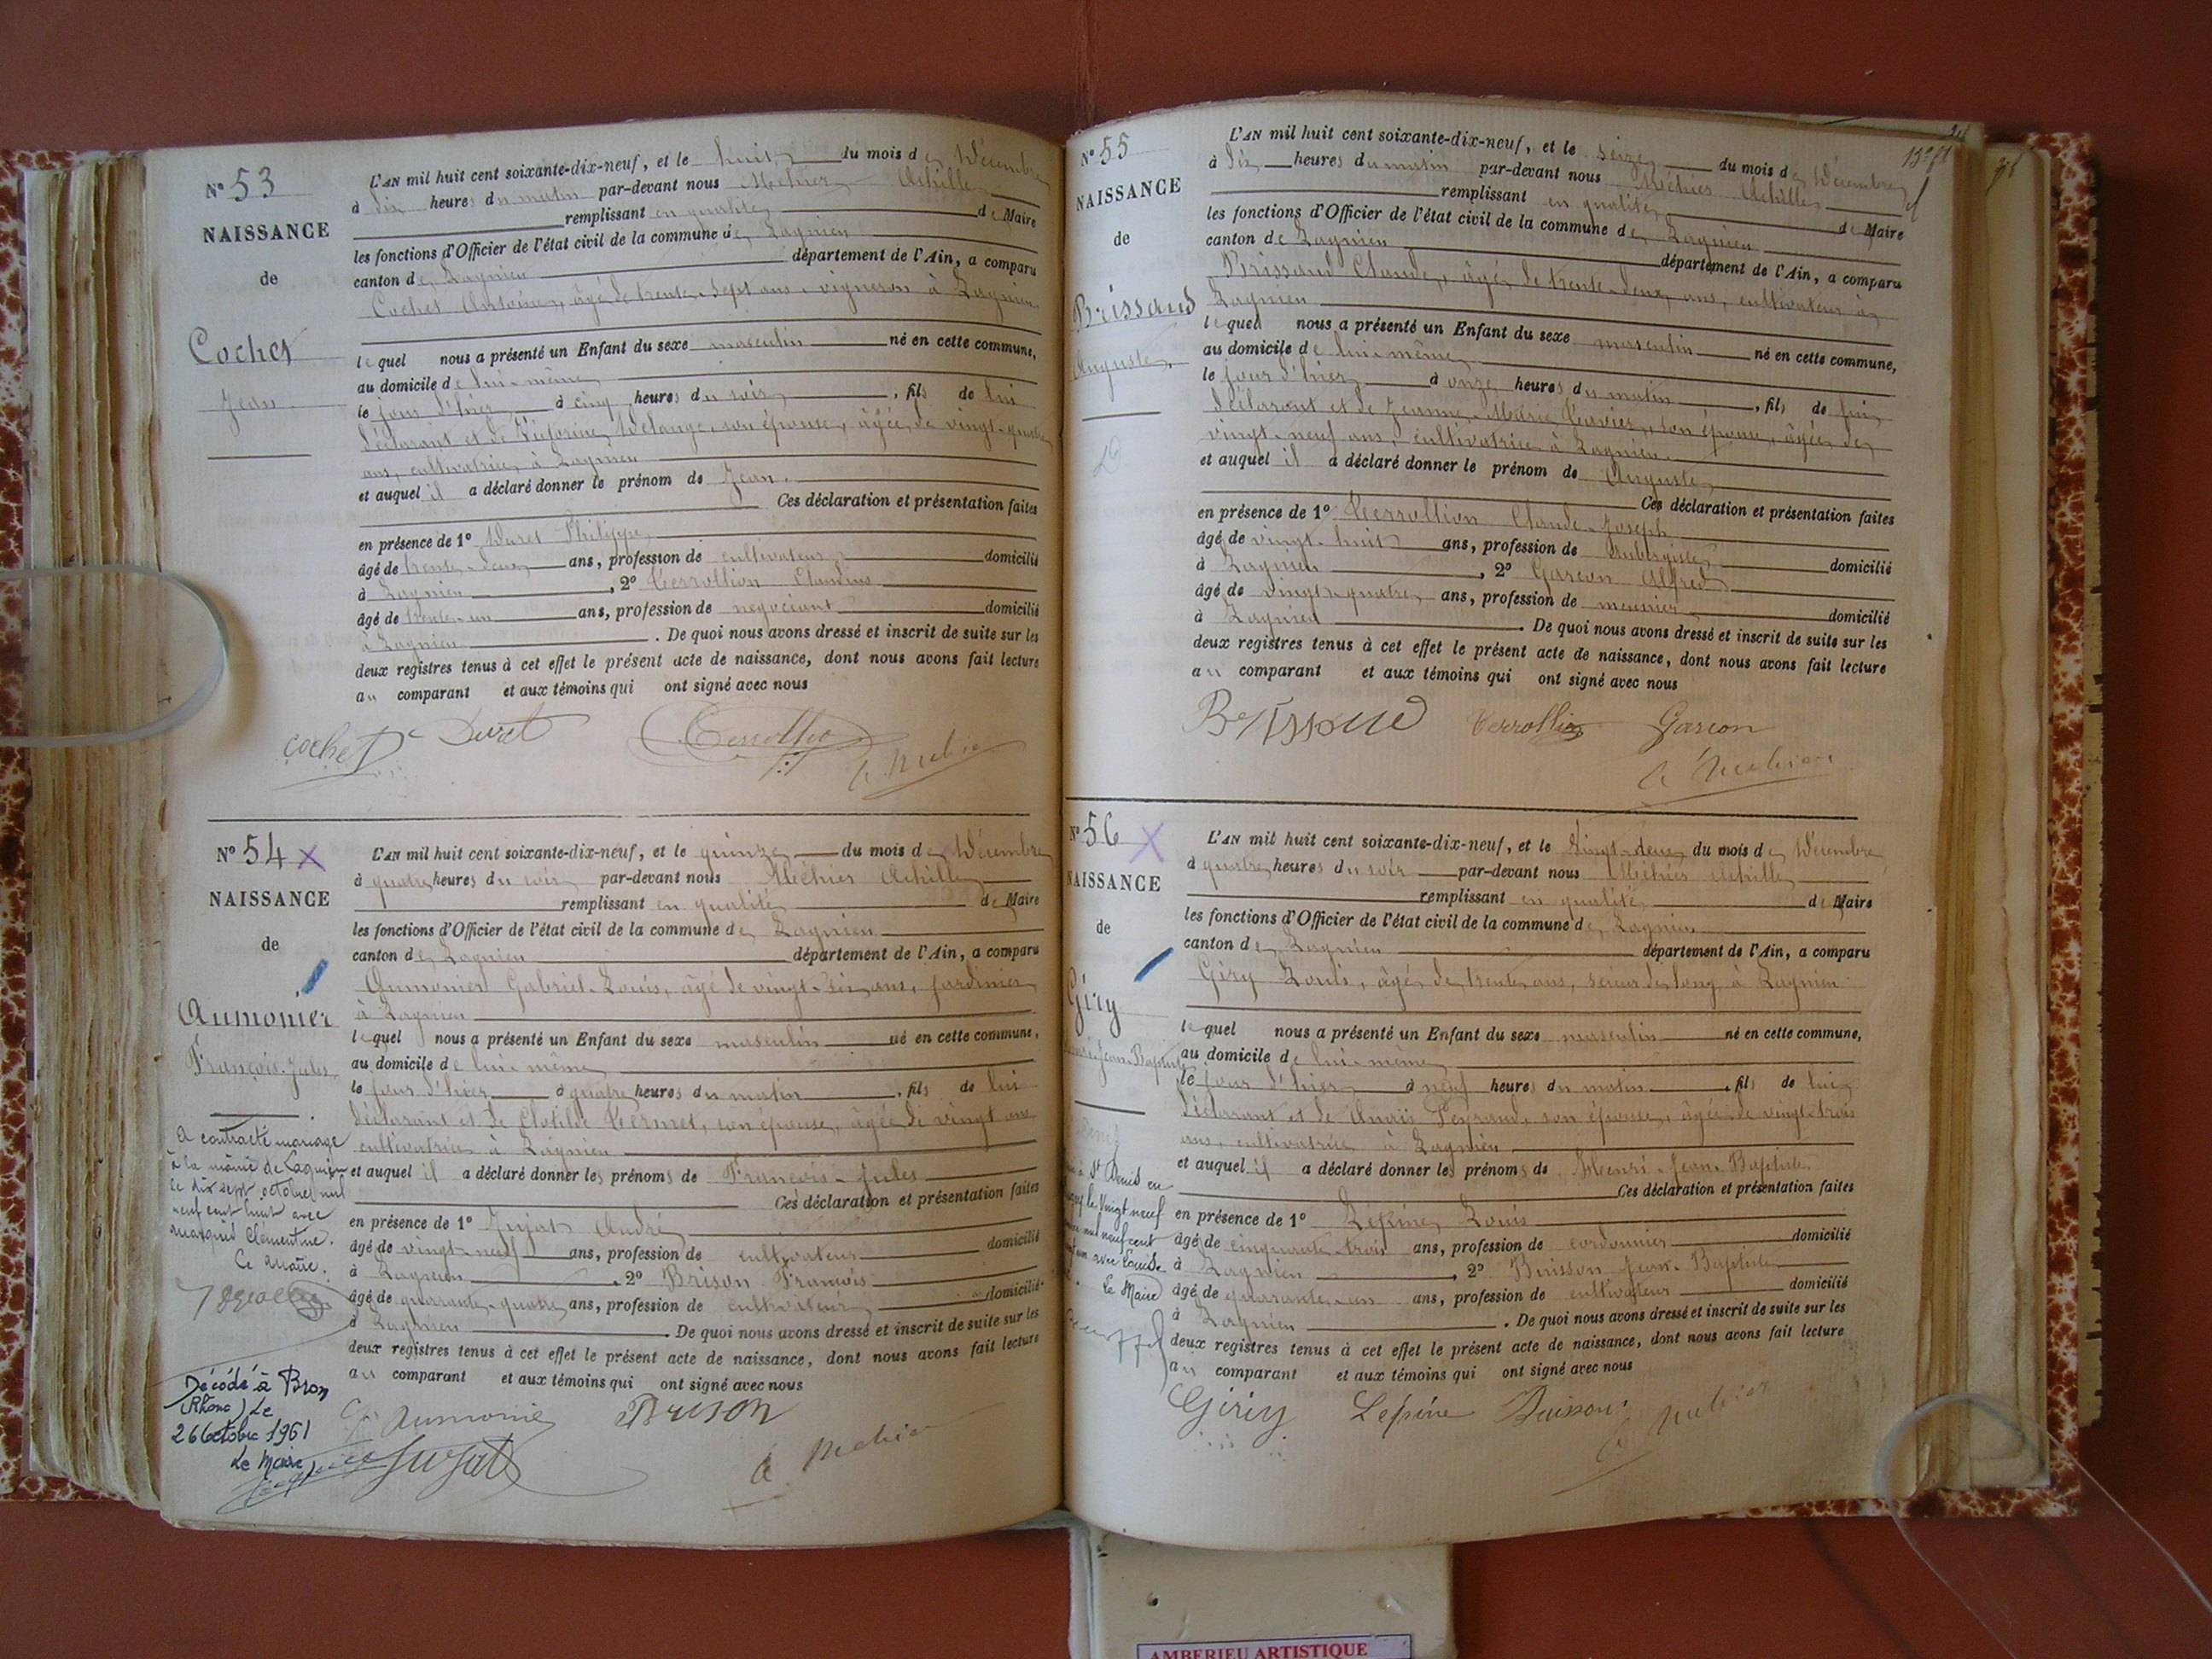 N° 53
NAISSANCE
de
Cochet
Jean
L'AN mil huit cent soixante-dix-neuf, et le huit du mois de Décembre
à dix heures du matin par-devant nous Méhier Achille
remplissant en qualité de Maire
les fonctions d'Officier de l'état civil de la commune de Lagnieu
canton de Lagnieu département de l'Ain, a comparu
Cochet Antoine, âgé de trente-sept ans, vigneron à Lagnieu
lequel nous a présenté un Enfant du sexe masculin né en cette commune,
au domicile de lui-même
le jour d'hier à cinq heures du soir, fils de lui
déclarant et de Victorine Delange, son épouse, âgée de vingt-quatre
ans, cultivatrice, à Lagnieu
et auquel il a déclaré donner le prénom de Jean.
Ces déclaration et présentation faites
en présence de 1° Duret Philippe
âgé de trente-deux ans, profession de cultivateur domicilié
à Lagnieu, 2° Terrollion Claudius
âgé de trente-un ans, profession de negociant domicilié
à Lagnieu. De quoi nous avons dressé et inscrit de suite sur les
deux registres tenus à cet effet le présent acte de naissance, dont nous avons fait lecture
au comparant et aux témoins qui ont signé avec nous
Cochet Duret Terrollion
A Méhier
N° 54 X
NAISSANCE
de
Aumonier
François-Jules
L'AN mil huit cent soixante-dix-neuf, et le quinze du mois de Décembre
à quatre heures du soir par-devant nous Méhier Achille
remplissant en qualité de Maire
les fonctions d'Officier de l'état civil de la commune de Lagnieu
canton de Lagnieu département de l'Ain, a comparu
Aumonier Gabriel-Louis, âgé de vingt-six ans, jardinier
à Lagnieu
lequel nous a présenté un Enfant du sexe masculin né en cette commune,
au domicile de lui-même
le jour d'hier à quatre heures du matin, fils de lui
déclarant et de Clotilde Vernet, son épouse, âgée de vingt ans
cultivatrice à Lagnieu
et auquel il a déclaré donner les prénoms de François-Jules
Ces déclaration et présentation faites
en présence de 1° Jujat André
âgé de vingt-neuf ans, profession de cultivateur domicilié
à Lagnieu, 2° Brison François
âgé de quarante-quatre ans, profession de cultivateur domicilié
à Lagnieu. De quoi nous avons dressé et inscrit de suite sur les
deux registres tenus à cet effet le présent acte de naissance, dont nous avons fait lecture
au comparant et aux témoins qui ont signé avec nous
Aumonier Brison
Jujat A Méhier
A contracté mariage
à la mairie de Lagnieu
le dix sept octobre mil
neuf cent huit avec
Clémentine.
Le Maire.
Décédé à Bron
(Rhône) Le
26 Octobre 1961
Le Maire
N° 55
NAISSANCE
de
Brissaud
Auguste
L'AN mil huit cent soixante-dix-neuf, et le seize du mois de Décembre
à dix heures du matin par-devant nous Méhier Achille
remplissant en qualité de Maire
les fonctions d'Officier de l'état civil de la commune de Lagnieu
canton de Lagnieu département de l'Ain, a comparu
Brissaud Claude, âgé de trente-deux ans, cultivateur à
Lagnieu
lequel nous a présenté un Enfant du sexe masculin né en cette commune,
au domicile de lui-même
le jour d'hier à onze heures du matin, fils de lui
déclarant et de Jeanne-Marie son épouse, âgée de
vingt-neuf ans, cultivatrice à Lagnieu.
et auquel il a déclaré donner le prénom de Auguste
Ces déclaration et présentation faites
en présence de 1° Terrollion Claude-Joseph
âgé de vingt-huit ans, profession de Aubergiste domicilié
à Lagnieu, 2° Garcon Alfred
âgé de vingt-quatre ans, profession de meunier domicilié
à Lagnieu. De quoi nous avons dressé et inscrit de suite sur les
deux registres tenus à cet effet le présent acte de naissance, dont nous avons fait lecture
au comparant et aux témoins qui ont signé avec nous
Terrollion Garcon
A Méhier
N° 56 X
NAISSANCE
de
Giry
Henri-Jean-Baptiste
L'AN mil huit cent soixante-dix-neuf, et le Vingt-deux du mois de Décembre
à quatre heures du soir par-devant nous Méhier Achille
remplissant en qualité de Maire
les fonctions d'Officier de l'état civil de la commune de Lagnieu
canton de Lagnieu département de l'Ain, a comparu
Giry Louis, âgé de trente ans, scieur de long à Lagnieu
lequel nous a présenté un Enfant du sexe masculin né en cette commune,
au domicile de lui-même
le jour d'hier à neuf heures du matin, fils de lui
déclarant et de Anaïs Peyraud, son épouse, âgée de vingt-trois
ans, cultivatrice à Lagnieu
et auquel il a déclaré donner les prénoms de Henri-Jean-Baptiste
Ces déclaration et présentation faites
en présence de 1° Lépine Louis
âgé de cinquante-trois ans, profession de cordonnier domicilié
à Lagnieu, 2° Buisson Jean-Baptiste
âgé de quarante-un ans, profession de cultivateur domicilié
à Lagnieu. De quoi nous avons dressé et inscrit de suite sur les
deux registres tenus à cet effet le présent acte de naissance, dont nous avons fait lecture
au comparant et aux témoins qui ont signé avec nous
Giriy Lépine Buisson
A Méhier
à St Denis en
le Vingt neuf
mil neuf cent
avec Louise
Le Maire
AMBERIEU ARTISTIQUE